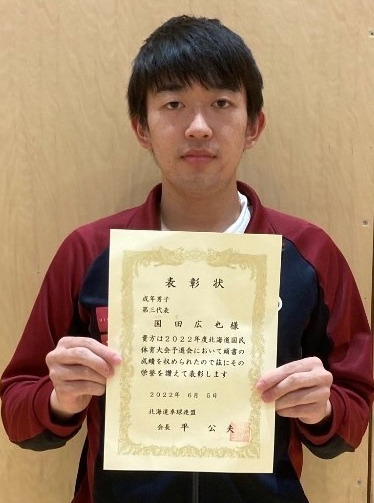 表彰状
成年男子
第三代表
国田広也様
貴方は2022年度北海道国民
体育大会予選会において頭書の
成績を収められたので茲にその
栄誉を讃えて表彰します
2022年 6月 5日
北海道卓球連盟
会長 平 公夫